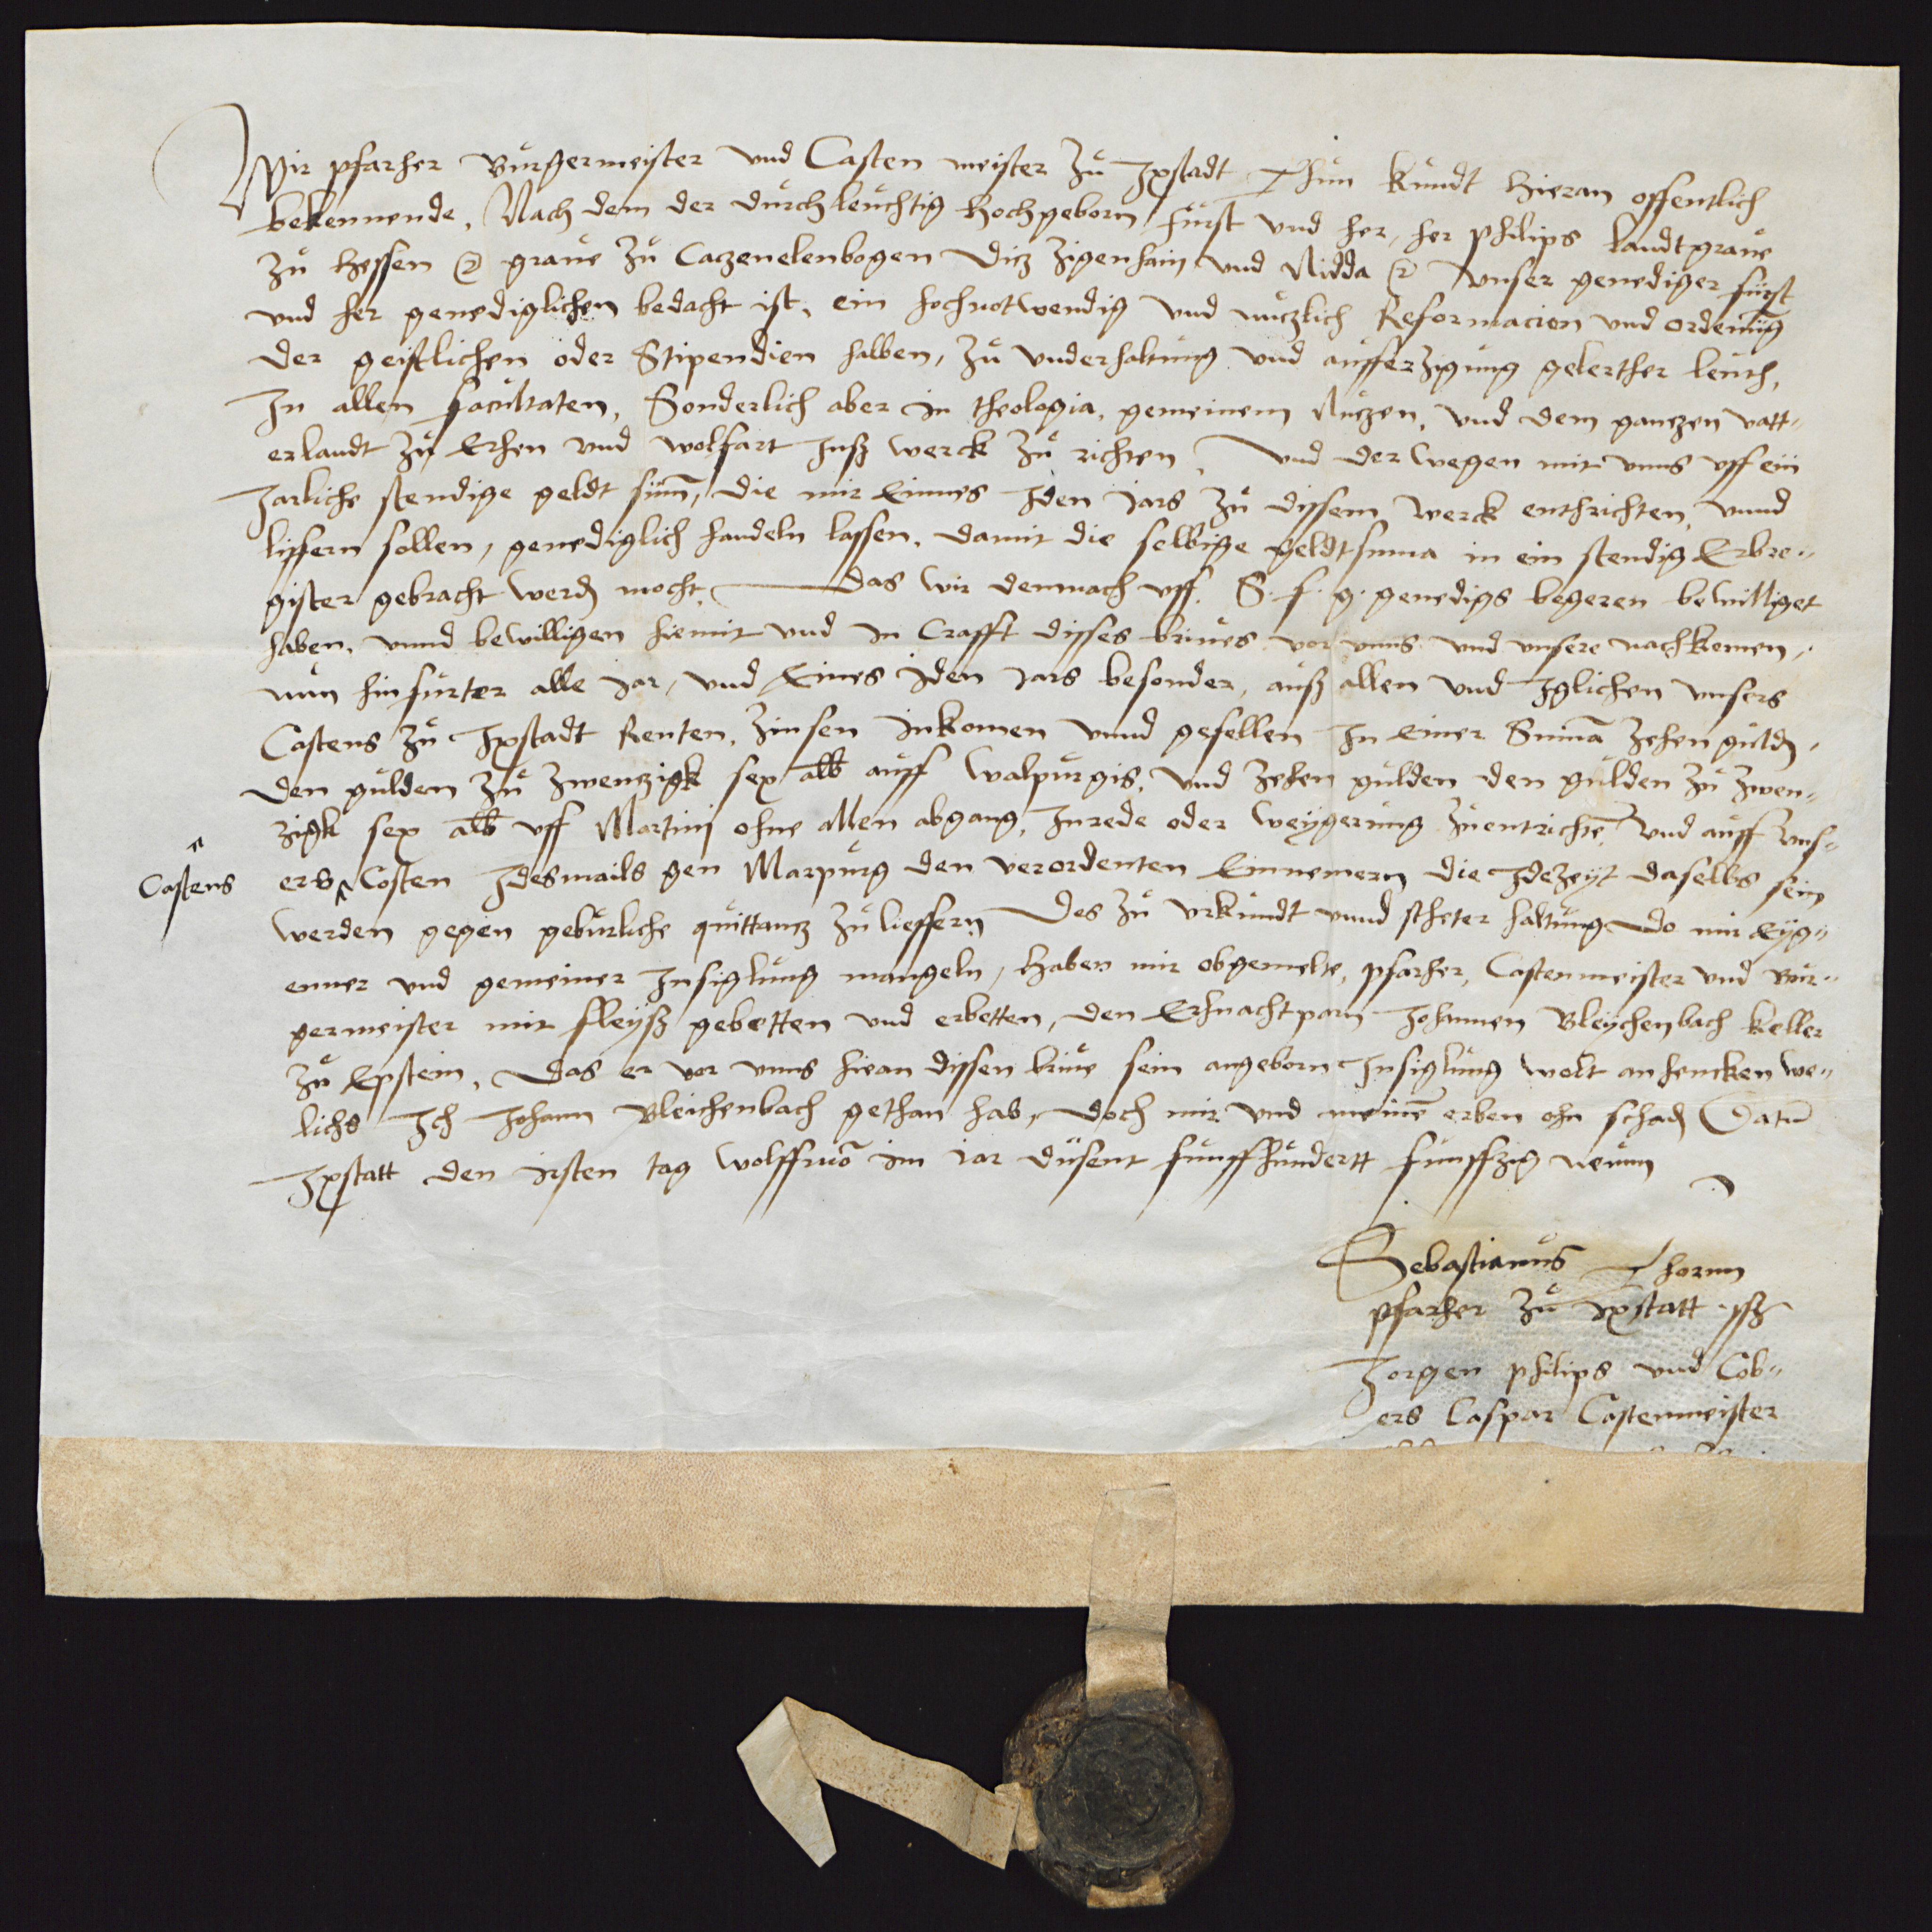 Wir pfarher Burgermeister und Casten meister zu Ipstadt Thun kundt hieran offentlich
bekennende, Nach dem der durchleuchtig hochgeborn furst und her, her Philips landtgrave
zu Hessen ꝛc grave zu Caczenelenbogen Dicz Zigenhain und Nidda ꝛc unser genediger furst
und her genediglichen bedacht ist, ein hochnotwendig und nuczlich Reformacion und ordenung
der geistlichen oder Stipendien halben, zu underhaltung und aufferzigung gelerther leuth,
In allen facultaten, Sonderlich aber in theologia, gemeinem Nuczen, und dem ganczen vatt-
erlandt zu Ehren und wolfart Inß werck zu richten, Und derwegen mit uns uff ein
Jarliche stendige geldt sum, die mir Einnes Iden Jars zu dissem werck enthrichten, unnd
liffern sollen, genediglich handeln lassen, damit die selbige geldtsuma in ein stendig Erbre-
gister gebracht werd mocht, Das wir demnach uff S. f. g. genedigs begeren bewilliget
haben, unnd bewilligen hiemit und in Crafft disses brives vor unns und unsere nachkomen,
nun hinfurter alle Jar, und Eines Iden Jars besonder, auß allen und Iglichen unsers
Castens zu Ipstadt Renten, Zinsen Inkomen unnd gefellen In einer Summa zehen guld,
den gulden zu zwenczigk sex alb auff Walpurgis, und zehen gulden den gulden zu zwen-
zigk sex alb uff Martinj ohne allen abgang, Inrede oder weygerung zuentrichten, und auff uns-
Castens
ers Costen Idesmails gen Marpurg den verordenten Einnemern die Idezeyt daselbs sein
werden gegen geburliche quittancz zu lieffern, Des zu urkundt unnd stheter haltung do mir Eyg-
enner und gemeiner Insiglung mangeln, Haben mir obgemelte, pfarher, Castenmeister und Bur-
germeister mit fleyß gebetten und erbetten, den Erhnachtparn Johannen Bleychenbach Keller
zu Epstein, Das er vor unns hiean dissen brive sein angeborn Insiglung wolt anhencken we-
lichs Ich Johann Bleichenbach gethan hab, Doch mir und meinen erben ohn schad Datum
Ipstatt den irsten tag im Jar dusent funffhundertt funffzig neunn
Sebastianus Thornn
pfarher zu Ipstatt
Jorgen Philips und Cob-
ers Caspar Castenmeister